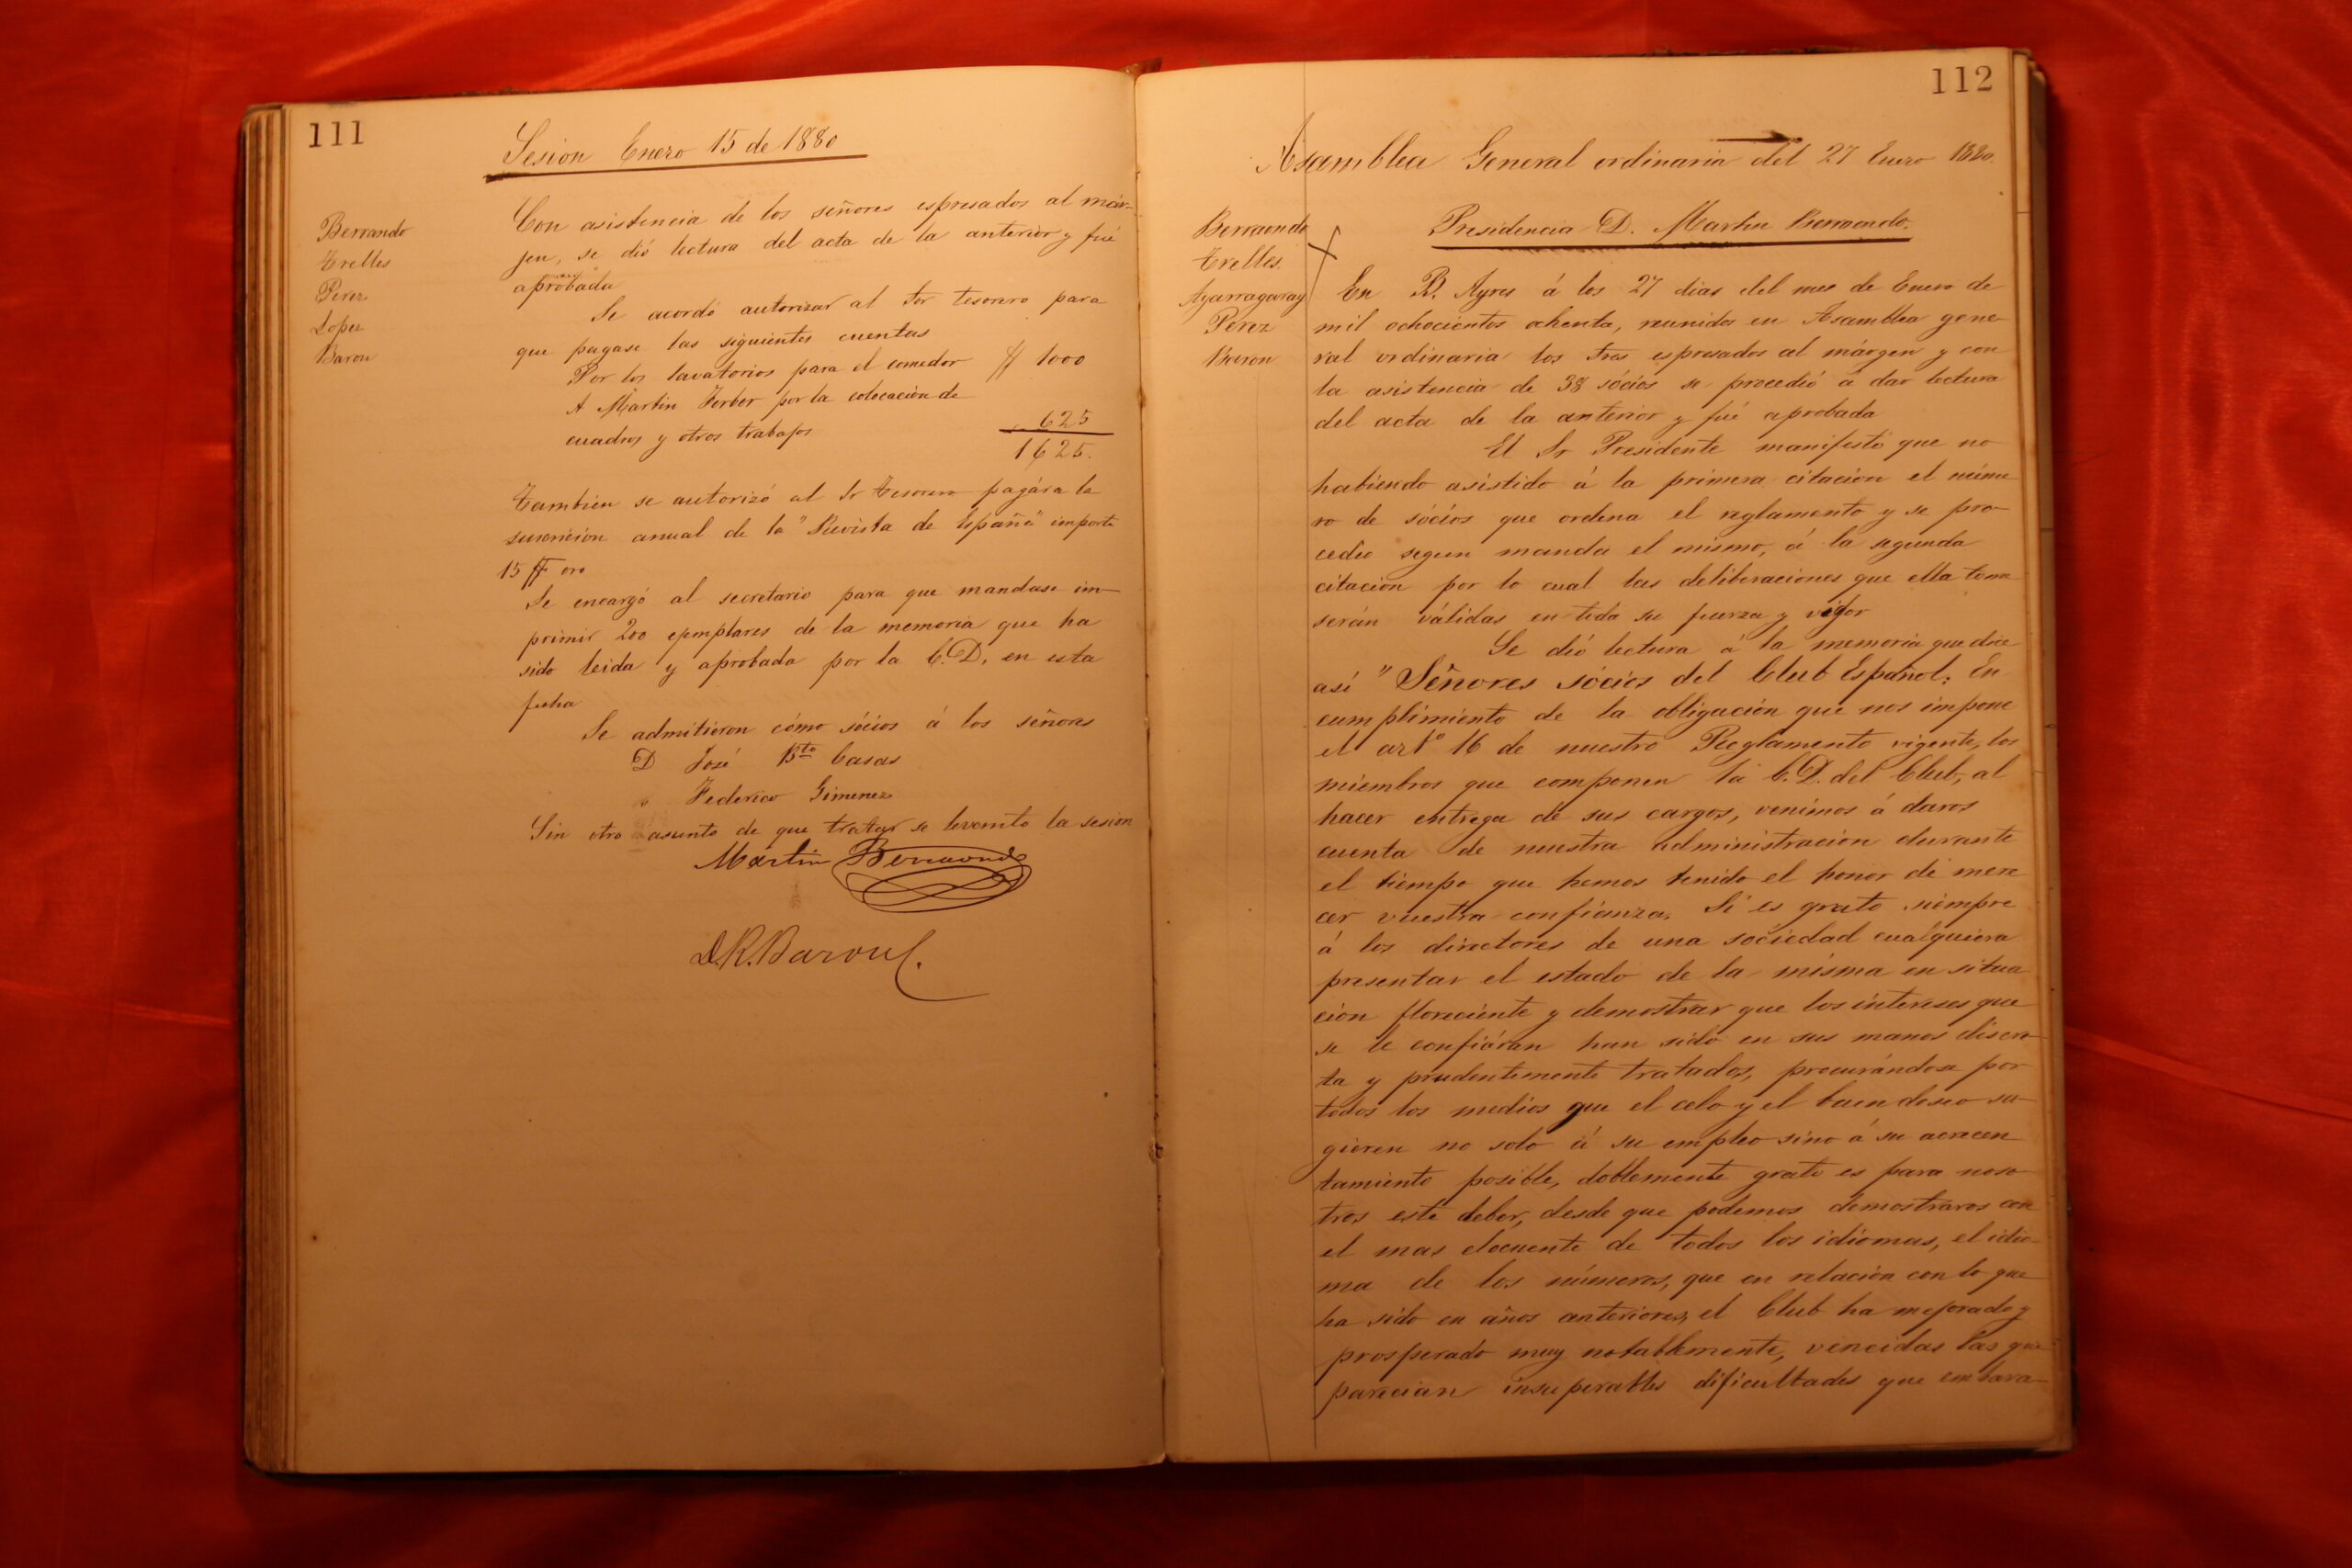 111
Sesion Enero 15 de 1880
Berraondo
Trelles
Perez
Lopez
Baron
Con asistencia de los señores espresados al már-
jen, se dió lectura del acta de la anterior y fué
aprobada
Se acordó autorizar al Sor tesorero para
que pagase las siguientes cuentas
Por los lavatorios para el comedor $ 1000
A Martin Ferber por la colocacion de
cuadros y otros trabajos 625
1625.
Tambien se autorizó al Sr Tesorero pagára la
suscricion anual de la "Revista de España" importe
15 $F oro
Se encargó al secretario para que mandase im-
primir 200 ejemplares de la memoria que ha
sido leida y aprobada por la C.D. en esta
fecha
Se admitieron cómo sócios á los señores
D José Bto Casas
" Federico Gimenez
Sin otro asunto de que tratar se levantó la sesion
Martin Berraondo
D.R. Baron
112
Asamblea General ordinaria del 27 Enero 1880.
Presidencia D. Martin Berraondo.
Berraondo
Trelles.
Ayarragaray
Perez
Baron
En B. Ayres á los 27 dias del mes de Enero de
mil ochocientos ochenta, reunidos en Asamblea gene-
ral ordinaria los Sres espresados al márgen y con
la asistencia de 38 sócios se procedió á dar lectura
del acta de la anterior y fué aprobada
El Sr Presidente manifestó que no
habiendo asistido á la primera citacion el núme
ro de sócios que ordena el reglamento y se pro-
cedio segun manda el mismo, á la segunda
citacion por lo cual las deliberaciones que ella tome
serán válidas en toda su fuerza y vigor
Se dió lectura á la memoria que dice
asi "Señores sócios del Club Español: En
cumplimiento de la obligacion que nos impone
el arto 16 de nuestro Reglamento vigente, los
miembros que componen la C.D. del Club, al
hacer entrega de sus cargos, venimos á daros
cuenta de nuestra administracion durante
el tiempo que hemos tenido el honor de mere
cer vuestra confianza. Si es grato siempre
á los directores de una sociedad cualquiera
presentar el estado de la misma en situa
cion floreciente y demostrar que los intereses que
se le confiáran han sido en sus manos discre-
ta y prudentemente tratados, procurándose por
todos los medios que el celo y el buen deseo su-
gieren no solo á su empleo sino á su acrecen
tamiento posible, doblemente grato es para noso-
tros este deber, desde que podemos demostraros con
el mas elocuente de todos los idiomas, el idio-
ma de los números, que en relacion con lo que
ha sido en años anteriores, el Club ha mejorado y
prosperado muy notablemente, vencidas las que
parecian insuperables dificultades que embara-